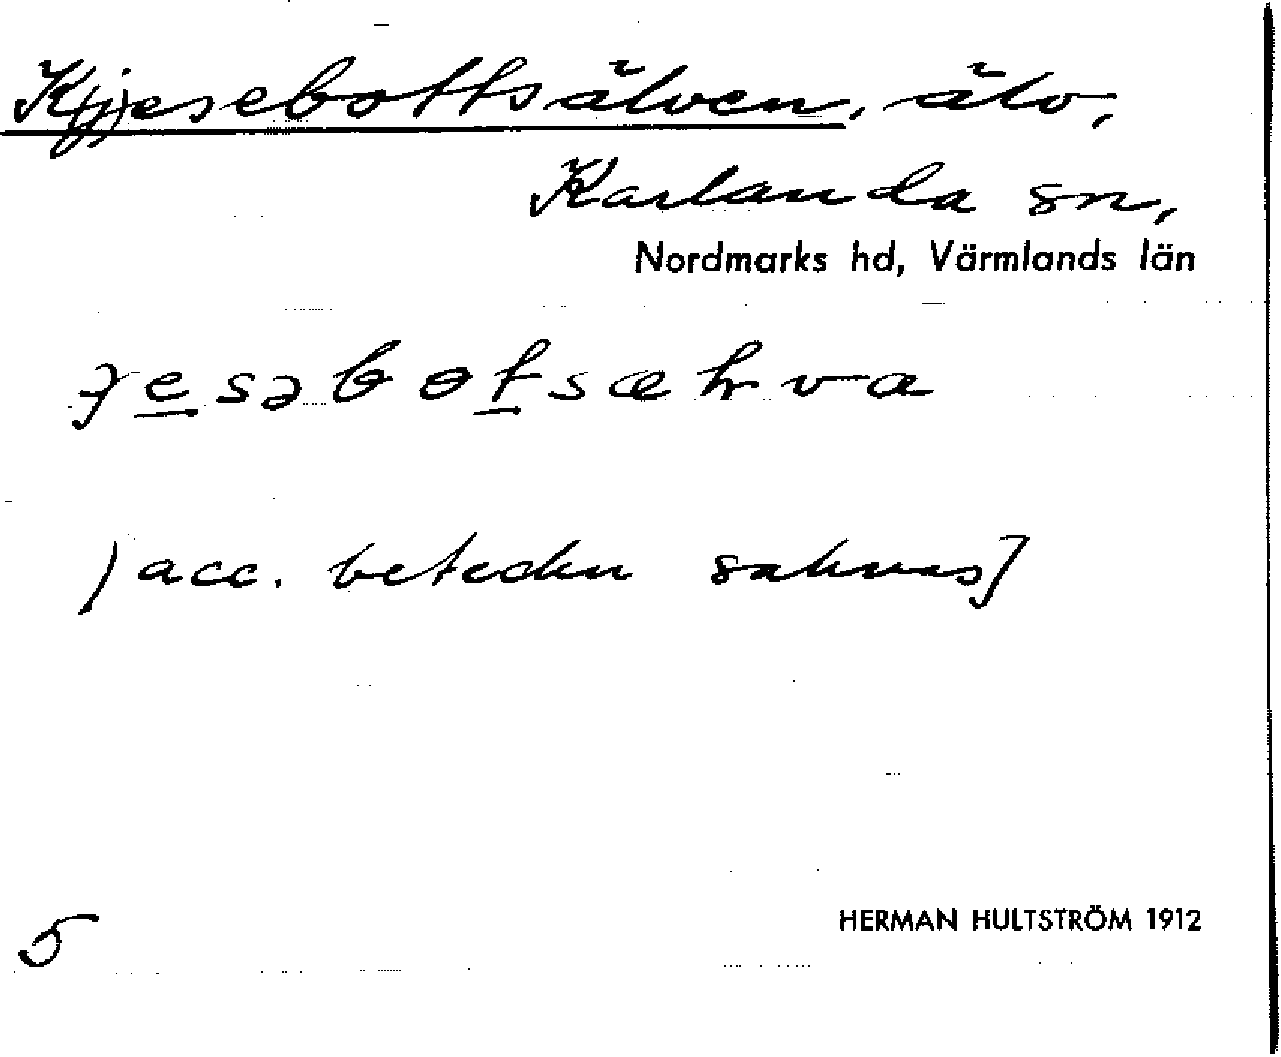 Kjesebottsälven, älv,
Karlanda sn,
Nordmarks hd, Värmlands län
(acc. beteckn saknas]
5
HERMAN HULTSTRÖM 1912